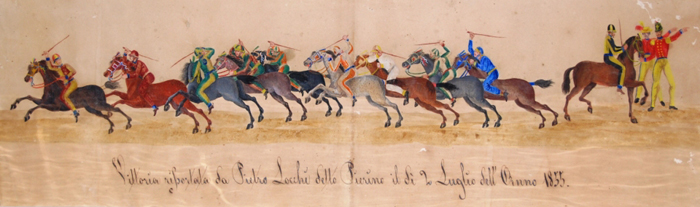 Vittoria riportata da Pietro Locchi detto Pierino il dì 2 Luglio dell'Anno 1855.